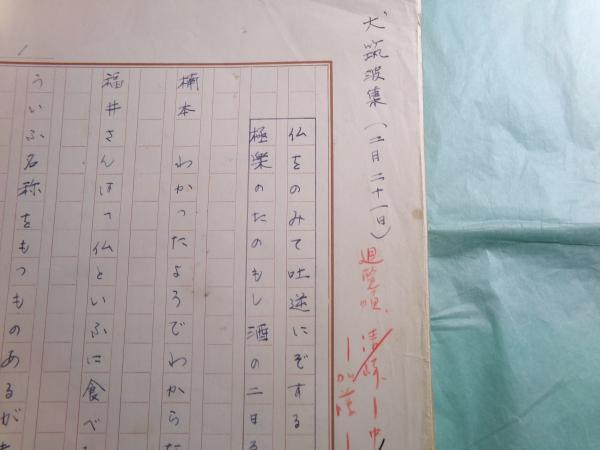 犬筑波集(二月二十一日)
回覧順、清崎ー中
ー加藤ー
仏をのみて吐逆にぞする
極楽のたのもし酒の二日ゑ
楠本 わかったようでわからた
福井さんはつ仏といふに食べ
ういふ名称をもつものあるが